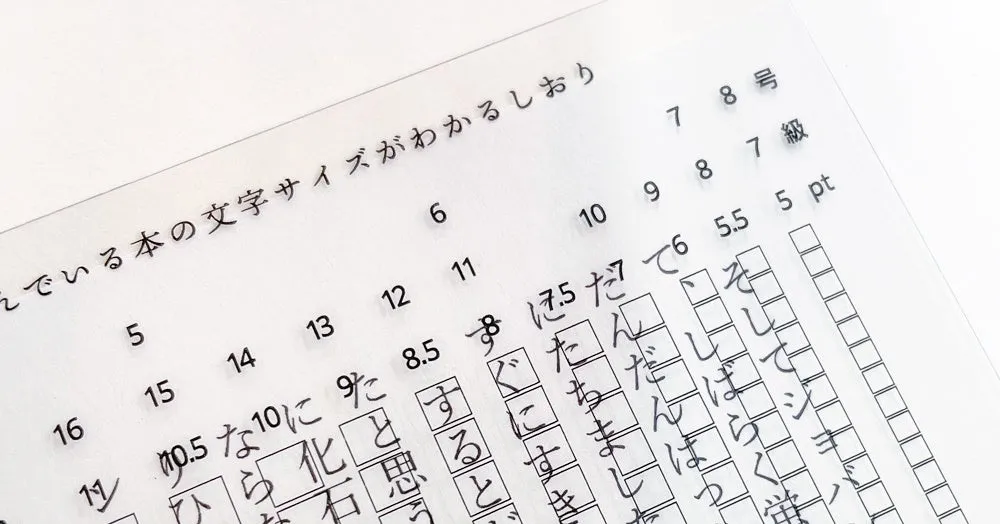 んでいる本の文字サイズがわかるしおり
5 6 7 8 号
16 15 14 13 12 11 10 9 8 7 級
11 10.5 10 9 8.5 8 7.5 7 6 5.5 5 pt
そしてジョバ
て、しばらく蛍
だんだんはっ
にたちました
すぐにすき
するとど
たと思う
に化石
なら